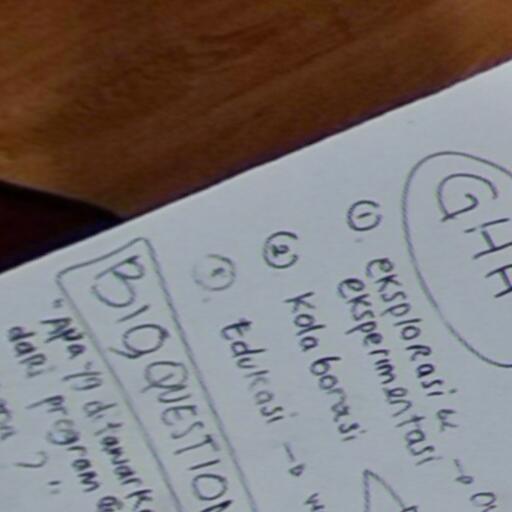 GHA
① eksplorasi &
eksperimentasi
② Kolaborasi
③ Edukasi →
BIG QUESTION
"Apa yg ditawark
dari program